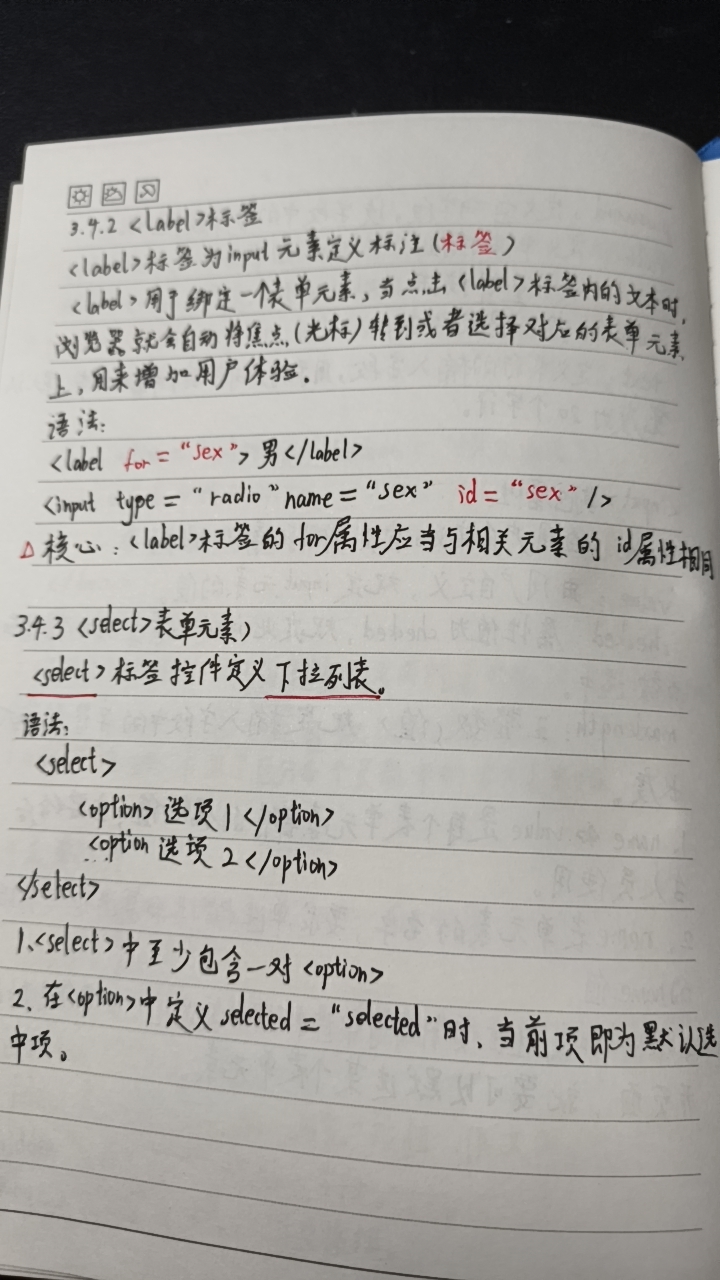 3.4.2 <label>标签
<label>标签为input元素定义标注(标签)
<label>用于绑定一个表单元素,当点击<label>标签内的文本时,
浏览器就会自动将焦点(光标)转到或者选择对应的表单元素
上,用来增加用户体验.
语法:
<label for="sex">男</label>
<input type="radio" name="sex" id="sex"/>
△核心:<label>标签的for属性应当与相关元素的id属性相同
3.4.3 <select>表单元素)
<select>标签控件定义下拉列表。
语法:
<select>
<option>选项1</option>
<option 选项2</option>
</select>
1.<select>中至少包含一对<option>
2.在<option>中定义selected="selected"时、当前项即为默认选
中项。